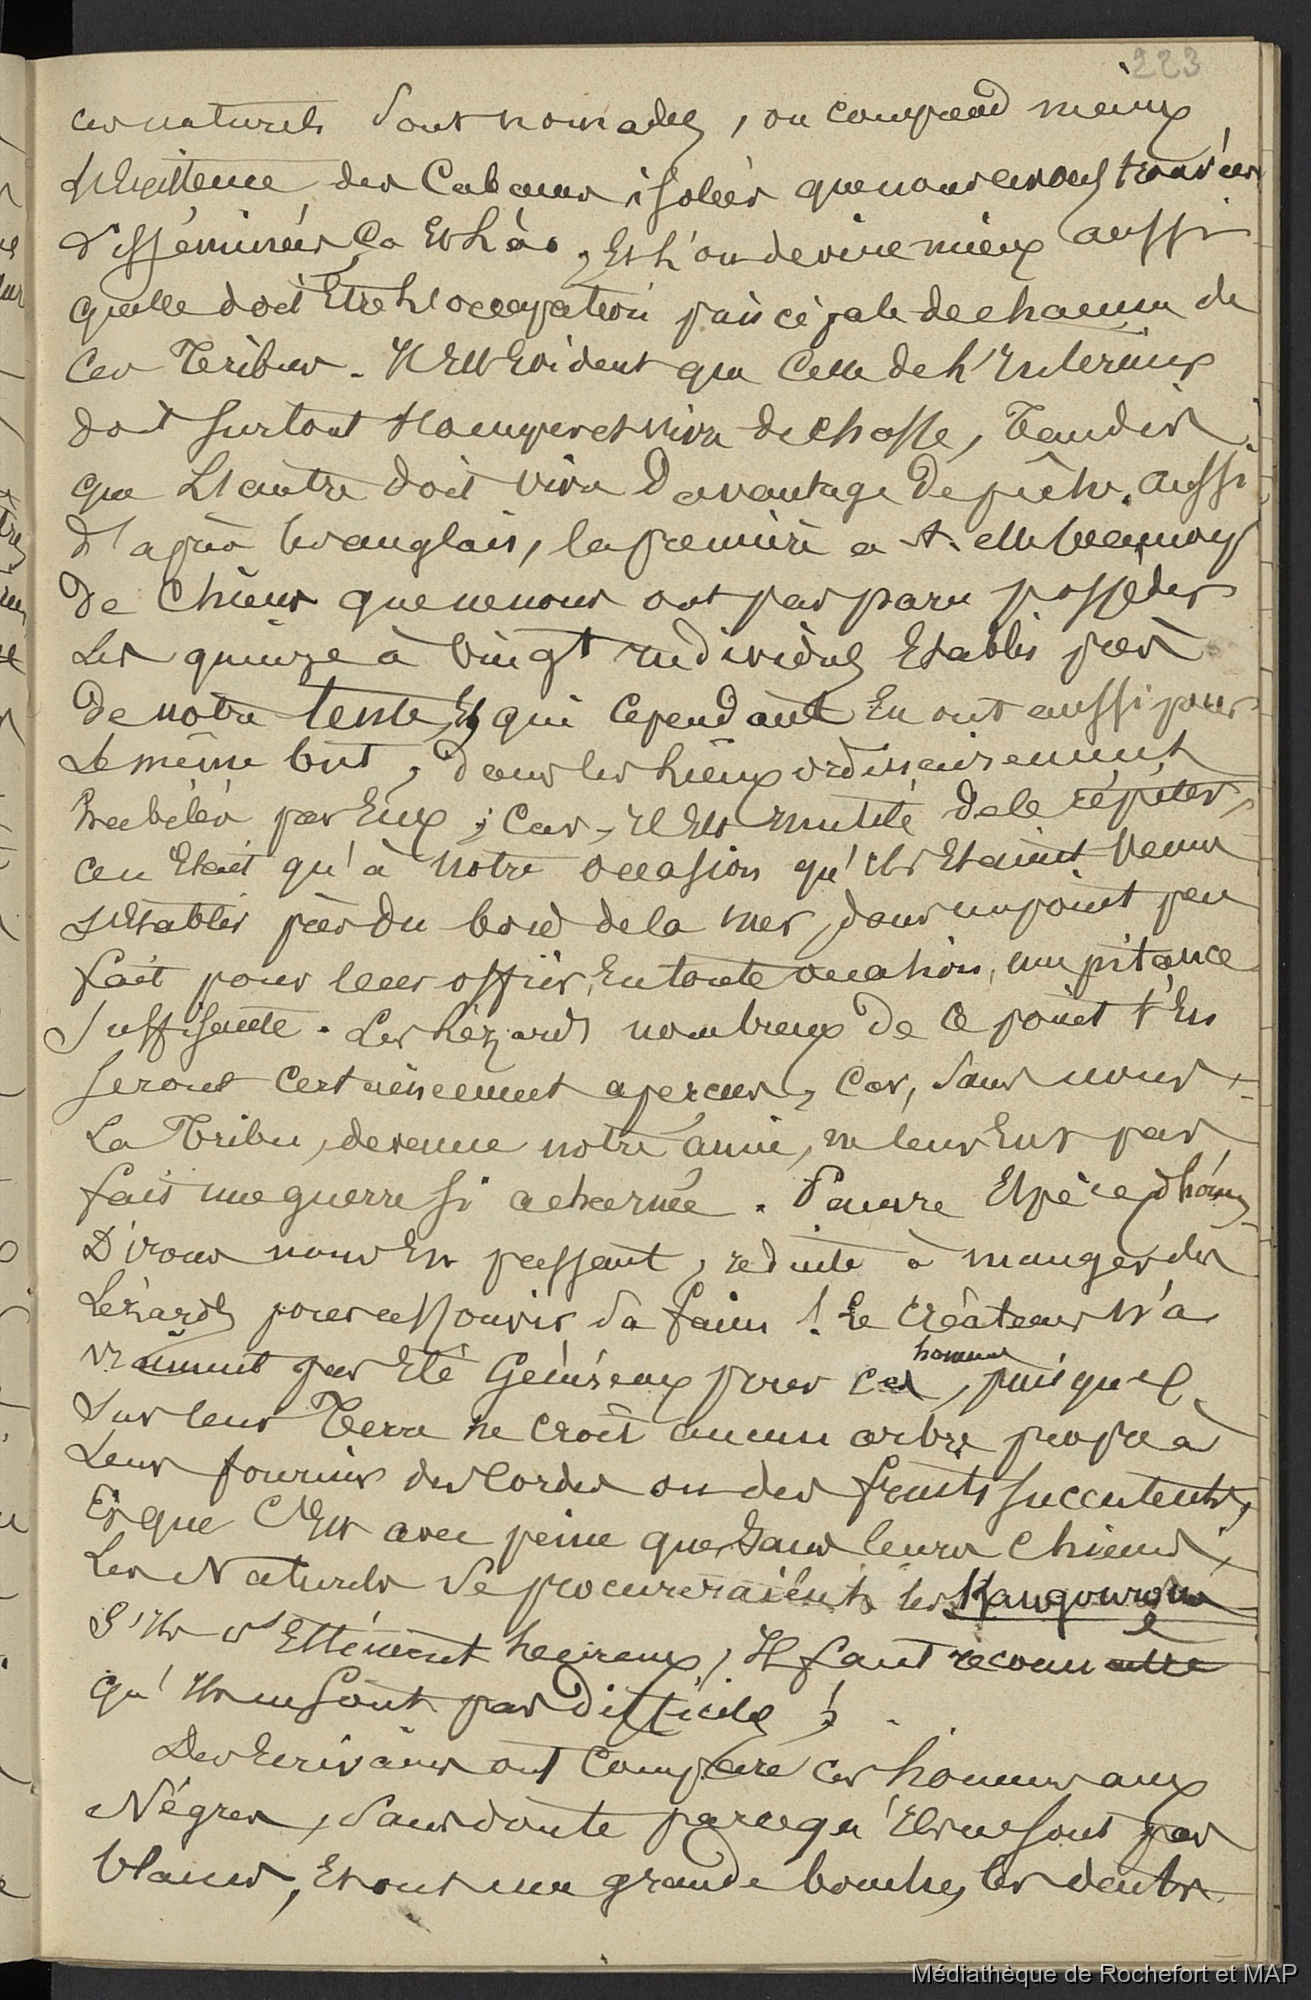 223
ces naturels sont nomades, on comprend mieux
l'Existence des Cabanes isolées que nous avons trouvées
disséminées Ca Et Là, Et l'on devine mieux aussi
quelle doit Etre l'occupation principale de chacune de
Ces Tribus. Il Est Evident que Celle de l'Intérieur
doit surtout s'occuper et vivre de chasse, Tandis
que L'autre doit vivre Davantage De pêche. Aussi
d'après les anglais, la première a t-elle beaucoup
De Chiens que ne nous ont pas paru posséder
Les quinze à Vingt individus Etablis près
De notre tente, Et qui Cependant En ont aussi pour
Le même but, dans les Lieux ordinairement
habités par Eux; Car, il Est inutile de le répéter,
ce n'Etait qu'à notre occasion qu'ils Etaient Venus
s'Etablir près du bord de la mer, dans un point peu
fait pour leur offrir, En toute occasion, une pitance
Suffisante. Les Lézards nombreux de ce point s'En
seront Certainement aperçus, Car, sans nous,
La Tribu, devenue notre amie, ne leur Eut pas
fait une guerre si acharnée. Pauvre Espèce d'hom
Dirons nous En passant, réduite à manger des
Lézards pour assouvir sa faim! Le Créateur n'a
vraiment pas Eté Généreux pour ces hommes, puisque
Sur leur Terre ne croît aucun arbre propre à
Leur fournir des Cordes ou des fruits succulents,
Et que C'Est avec peine que, Sans leurs Chiens,
Les Naturels se procureraient les Kangourous
S'ils s'Estiment heureux, Il faut reconnaître
qu'ils ne Sont pas Difficiles!
Des Ecrivains ont Comparé ces hommes aux
Nègres, Sans doute parce qu'ils ne sont pas
blancs, Et ont une grande bouche, les dents
Médiathèque de Rochefort et MAP